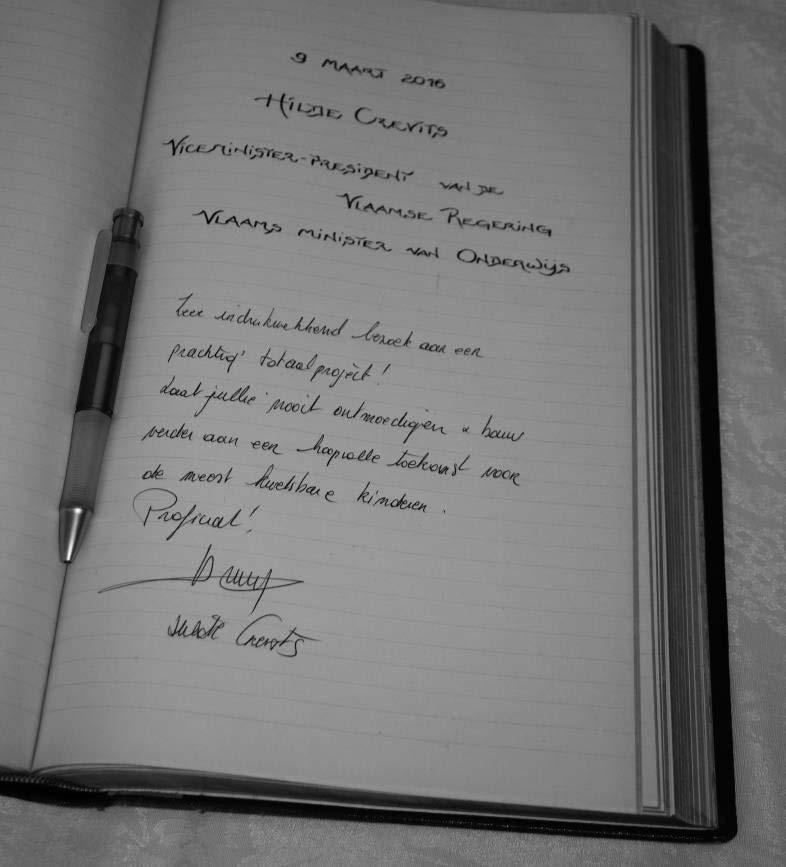 9 MAART 2016
HILDE CREVITS
VICEMINISTER-PRESIDENT VAN DE
VLAAMSE REGERING
VLAAMS MINISTER VAN ONDERWIJS
Zeer indrukwekkend bezoek aan een
prachtig totaalproject!
Laat jullie nooit ontmoedigen & bouw
verder aan een hoopvolle toekomst voor
de meest kwetsbare kinderen.
Proficiat!
Hilde Crevits